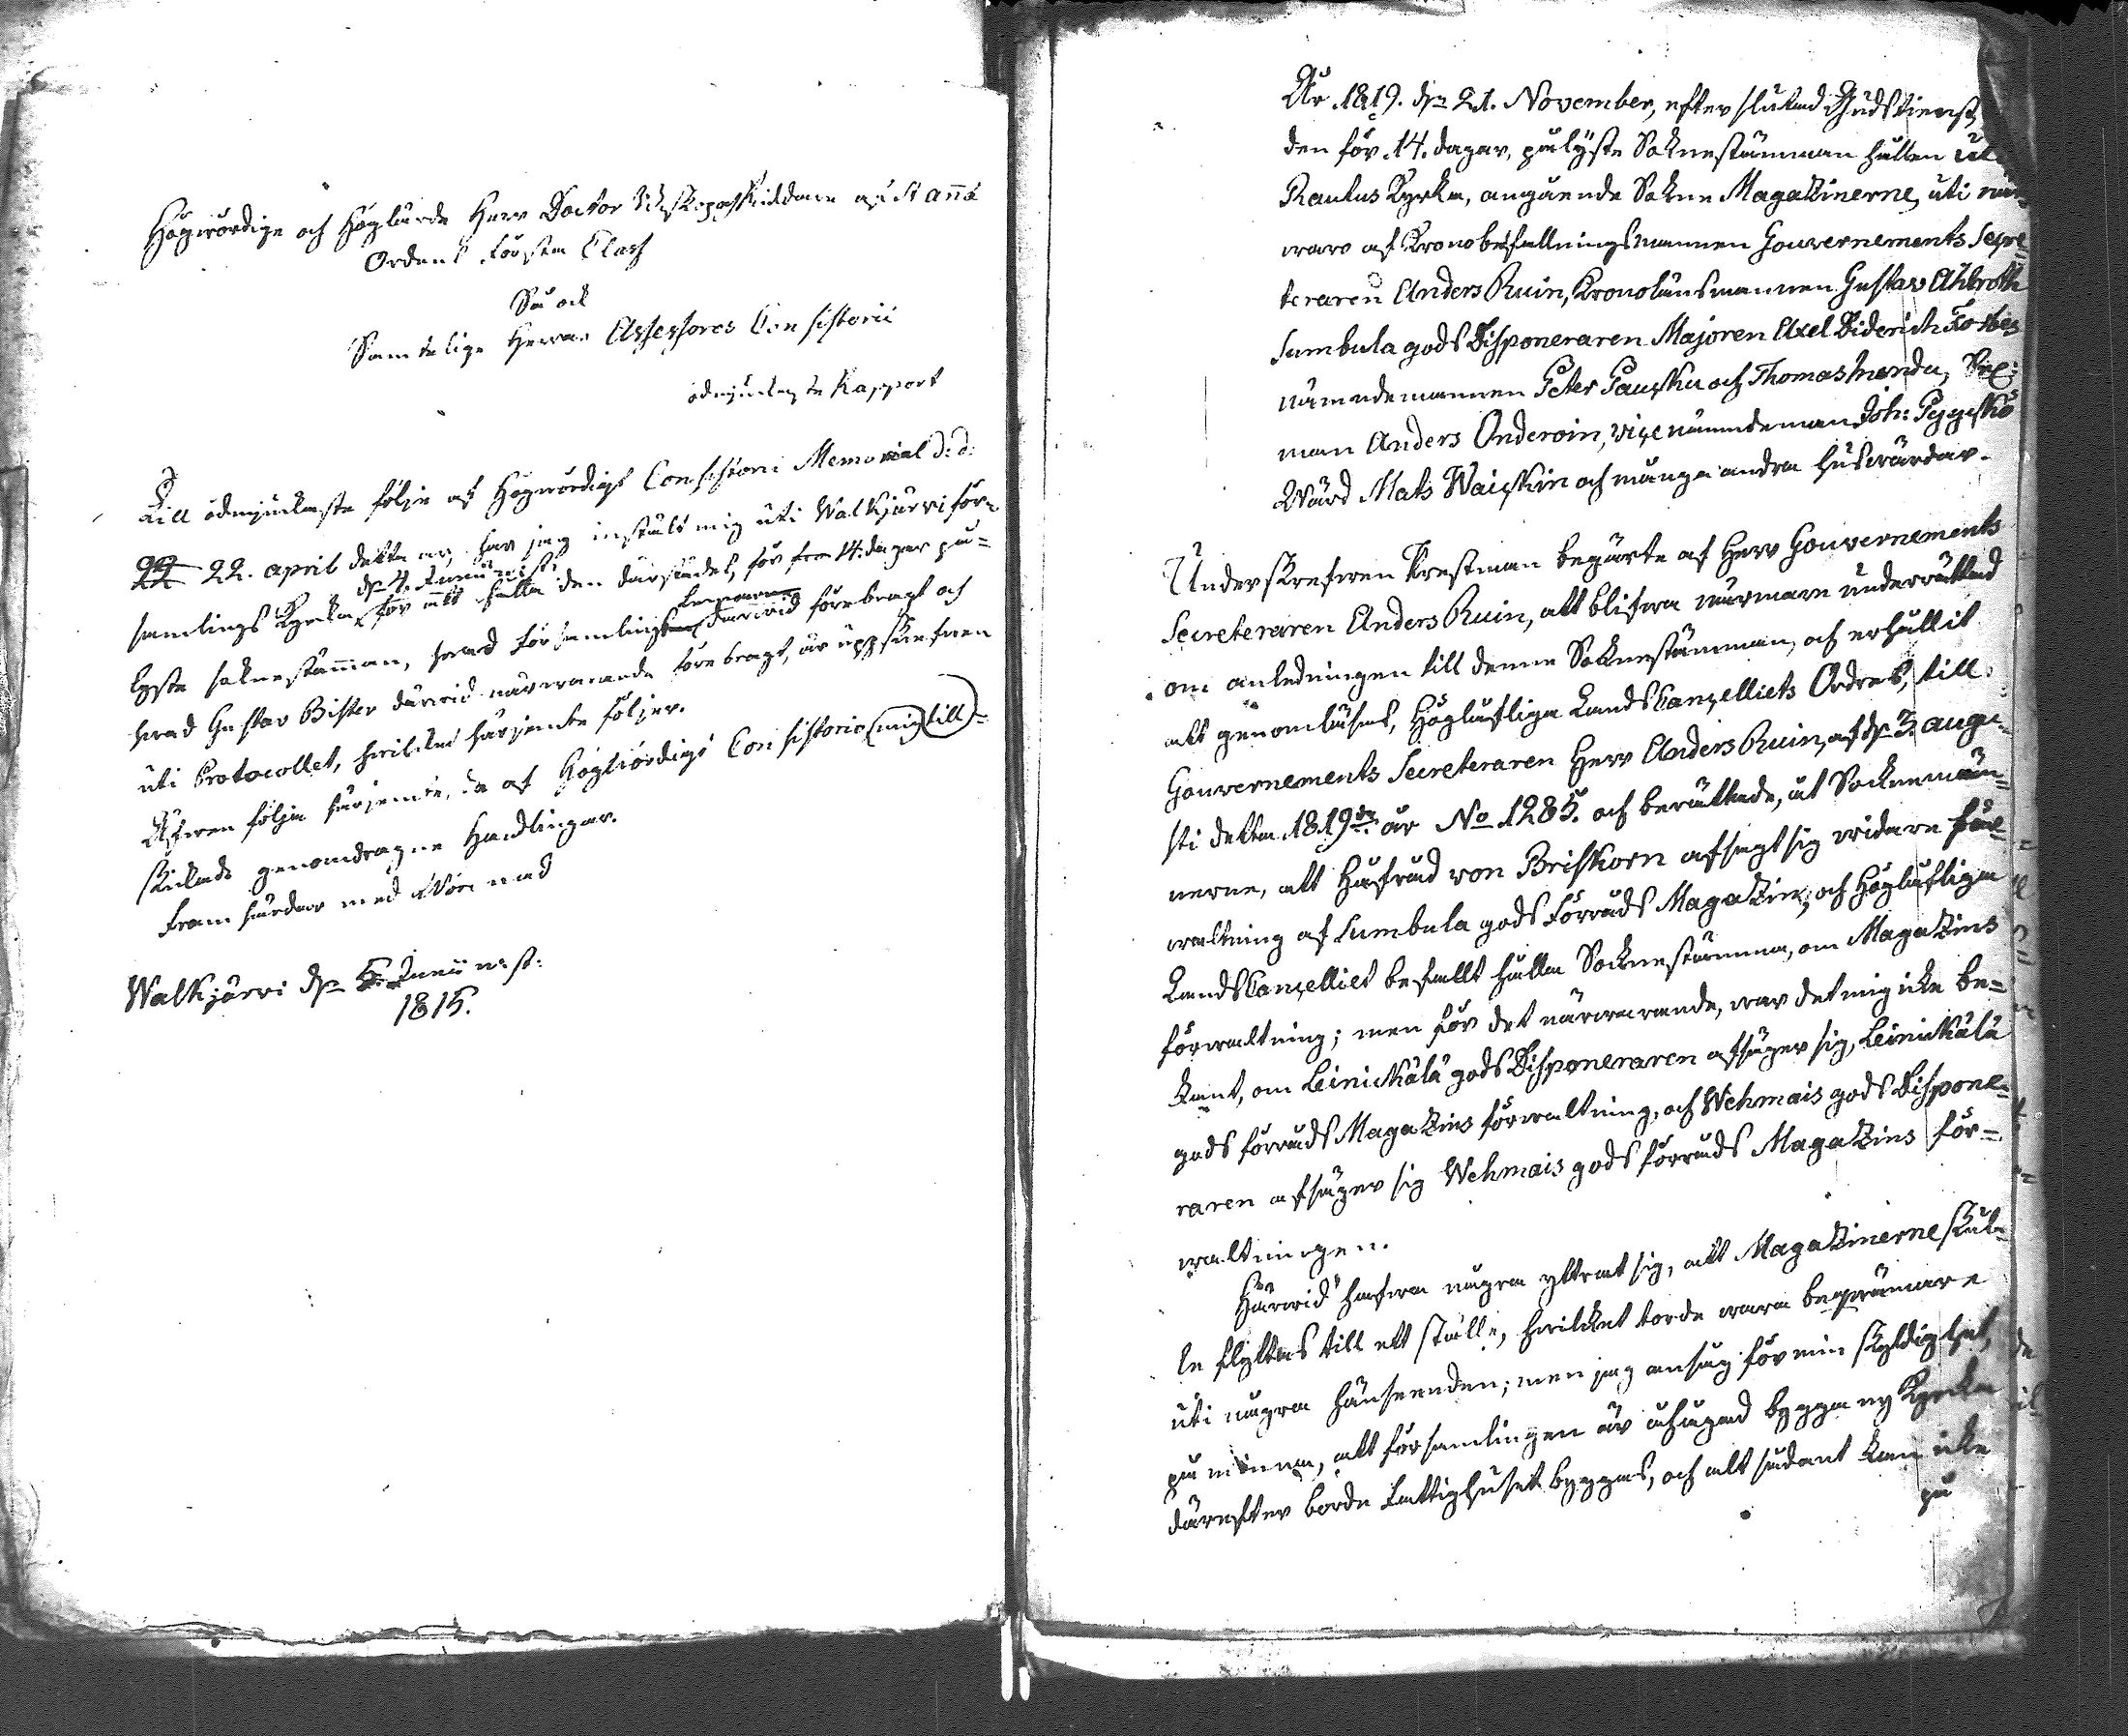 Högwördige och Höglärde Herr Doctor Biskopen Riddare af St Annæ
Ordens Första Class
Så ock
Samtelige Herrar Assessores Consistorii
ödmjukaste Rapport
Till ödmjukaste följe af Högwördige Consistorii Memorial d: d:
22 22. april detta år, har jag instält mig uti Walkjärvi för=
dn 4. Junii n: st:
samlings Kyrka för att hålla den därstädes, för 14. dagar på=
lyste soknestämman, hwad Församlings därwid förebragt och
hwad Gustav Bister därwid närwarande förebragt, är uppskrefwen
uti Protocollet, hwilket härjemte följer.
Äfwen följa härjemte, de af Högwördige Consistorio (mig till=
skickade genomdragne Handlingar.
Framhärdar med wörnad
Walkjärvi dn 5. Junii n: st:
1815.
År 1819. dn 21. November, efter slutad Gudstienst,
den för 14. dagar, pålyste Soknestämman hållen uti
Rautus Kyrka, angående Sokne Magazinerne, uti när=
waro af Kronobefallningsmannen Gouvernements Secre=
teraren Anders Ruin, Kronolänsmannen Gustav Ahlroth
Sumbula gods Disponeraren Majoren Axel Diderich Forbes
nämndemannen Peter Pausku och Thomas Inonda, Sex=
man Anders Onderoin, vice nämndeman Joh: Pyyskö
Wärd Mats Waiskin och många andra Huswärdar.
Underskrefwen Prestman begärte af Herr Gouvernements
Secreteraren Anders Ruin, att blifwa närmare underrättad
om anledningen till denne Soknestämman, och erhållit
att genomläses, Höglofliga Lands Cancelliets Ordres, till
Gouvernements Secreteraren Herr Anders Ruin, af dn 3. augu=
sti detta 1819de år No 1285. och berättade, åt Socknemän=
nerne, att Husfrud von Briskorn afsagt sig widare för=
waltning af Sumbula gods Förråds Magazin, och Höglofliga
Lands Cancelliet befallt hålla Soknestämma, om Magazins
förwaltning; men för det närwarande, war det mig icke be=
kant, om Leinickälä gods Disponeraren afsäger sig, Leinickälä
gods förråds Magazins förwaltning, och Wehmais gods Dispone=
raren afsäger sig Wehmais gods förråds Magazins för=
waltningen.
Härwid hafwa några yttrat sig, att Magazinerne skul=
le flyttas till ett ställe, hwilket torde wara beqwämare
uti några hänseenden; men jag ansåg för min skyldighet,
påminna, att församlingen är åhugad bygga ny Kyrka
därefter borde Fattighuset byggas, och alt sådant kan icke
på